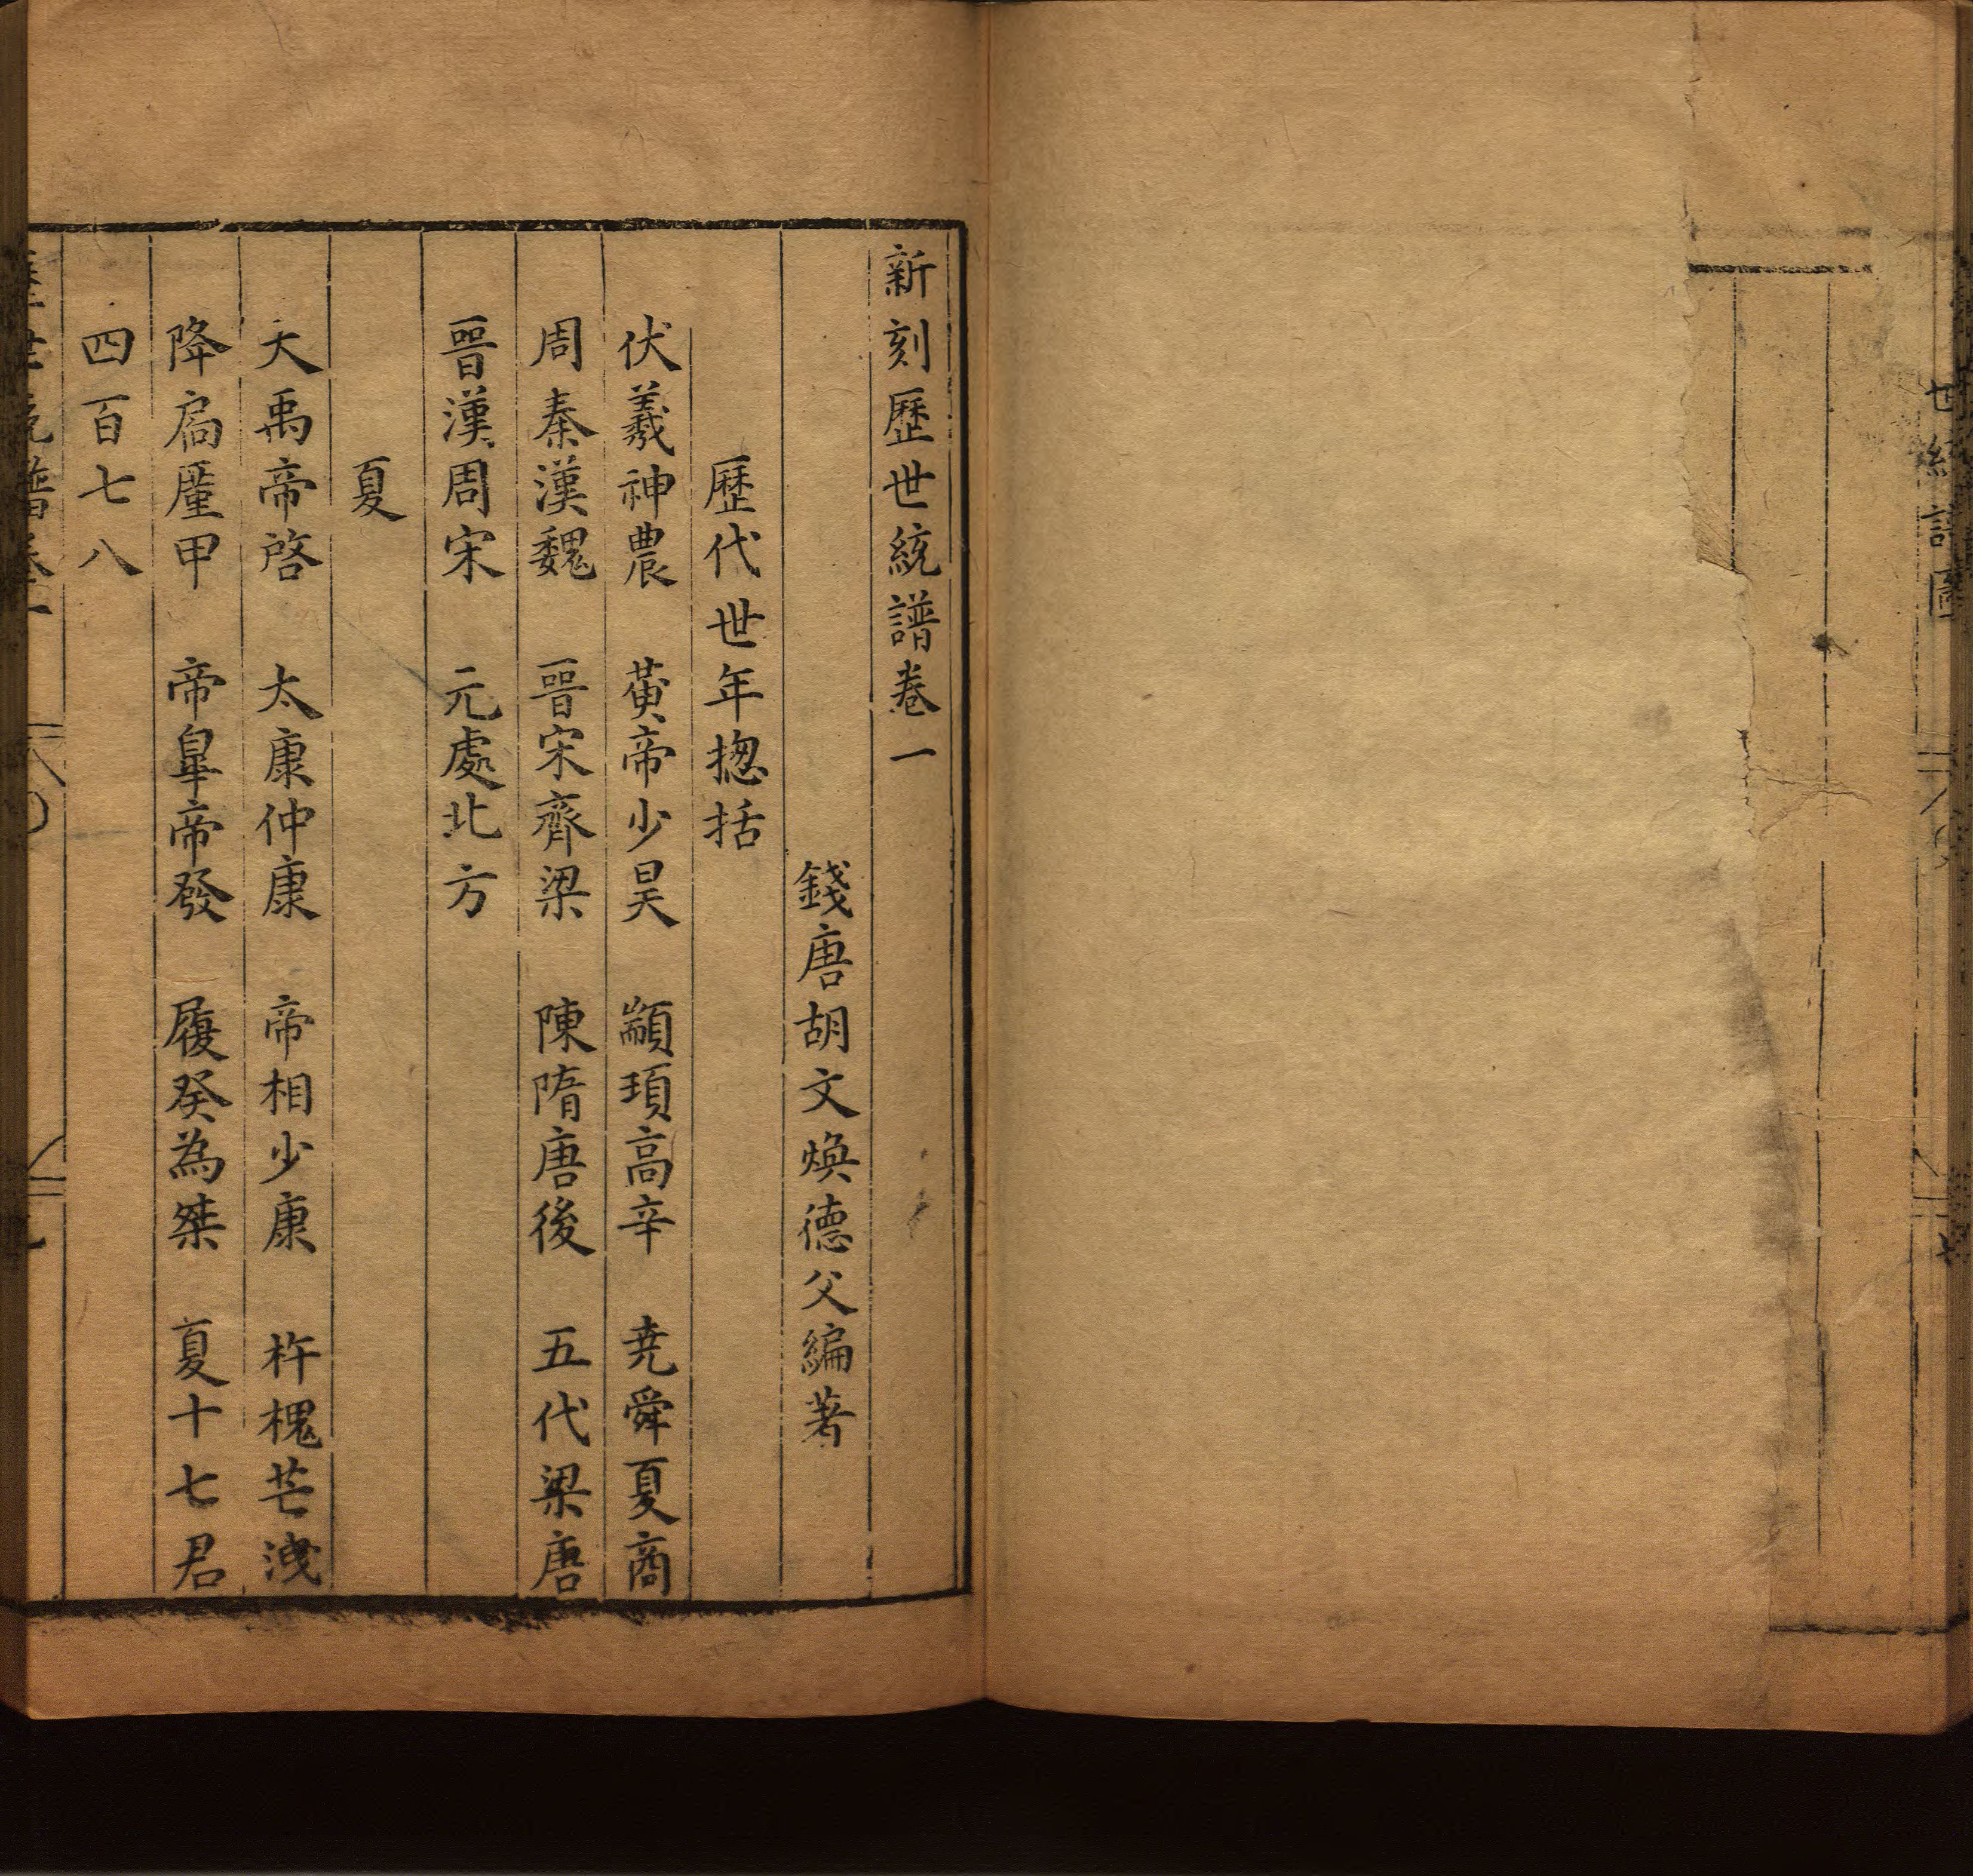 新刻歷世統譜卷一
錢唐胡文煥德父編著
歷代世年揔括
伏羲神農　黃帝少昊　顓頊高辛　尭舜夏商
周秦漢魏　晉宋齊梁　陳隋唐後　五代梁唐
晉漢周宋　元處北方
夏
大禹帝啓　太康仲康　帝相少康　杵槐芒洩
降扃厪甲　帝皐帝發　履癸為桀　夏十七君
四百七八